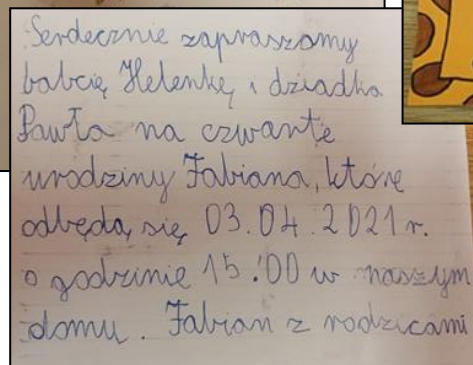 Serdecznie zapraszamy
babcię Helenkę i dziadka
Pawła na czwarte
urodziny Fabiana, które
odbędą się 03.04.2021 r.
o godzinie 15:00 w naszym
domu. Fabian z rodzicami